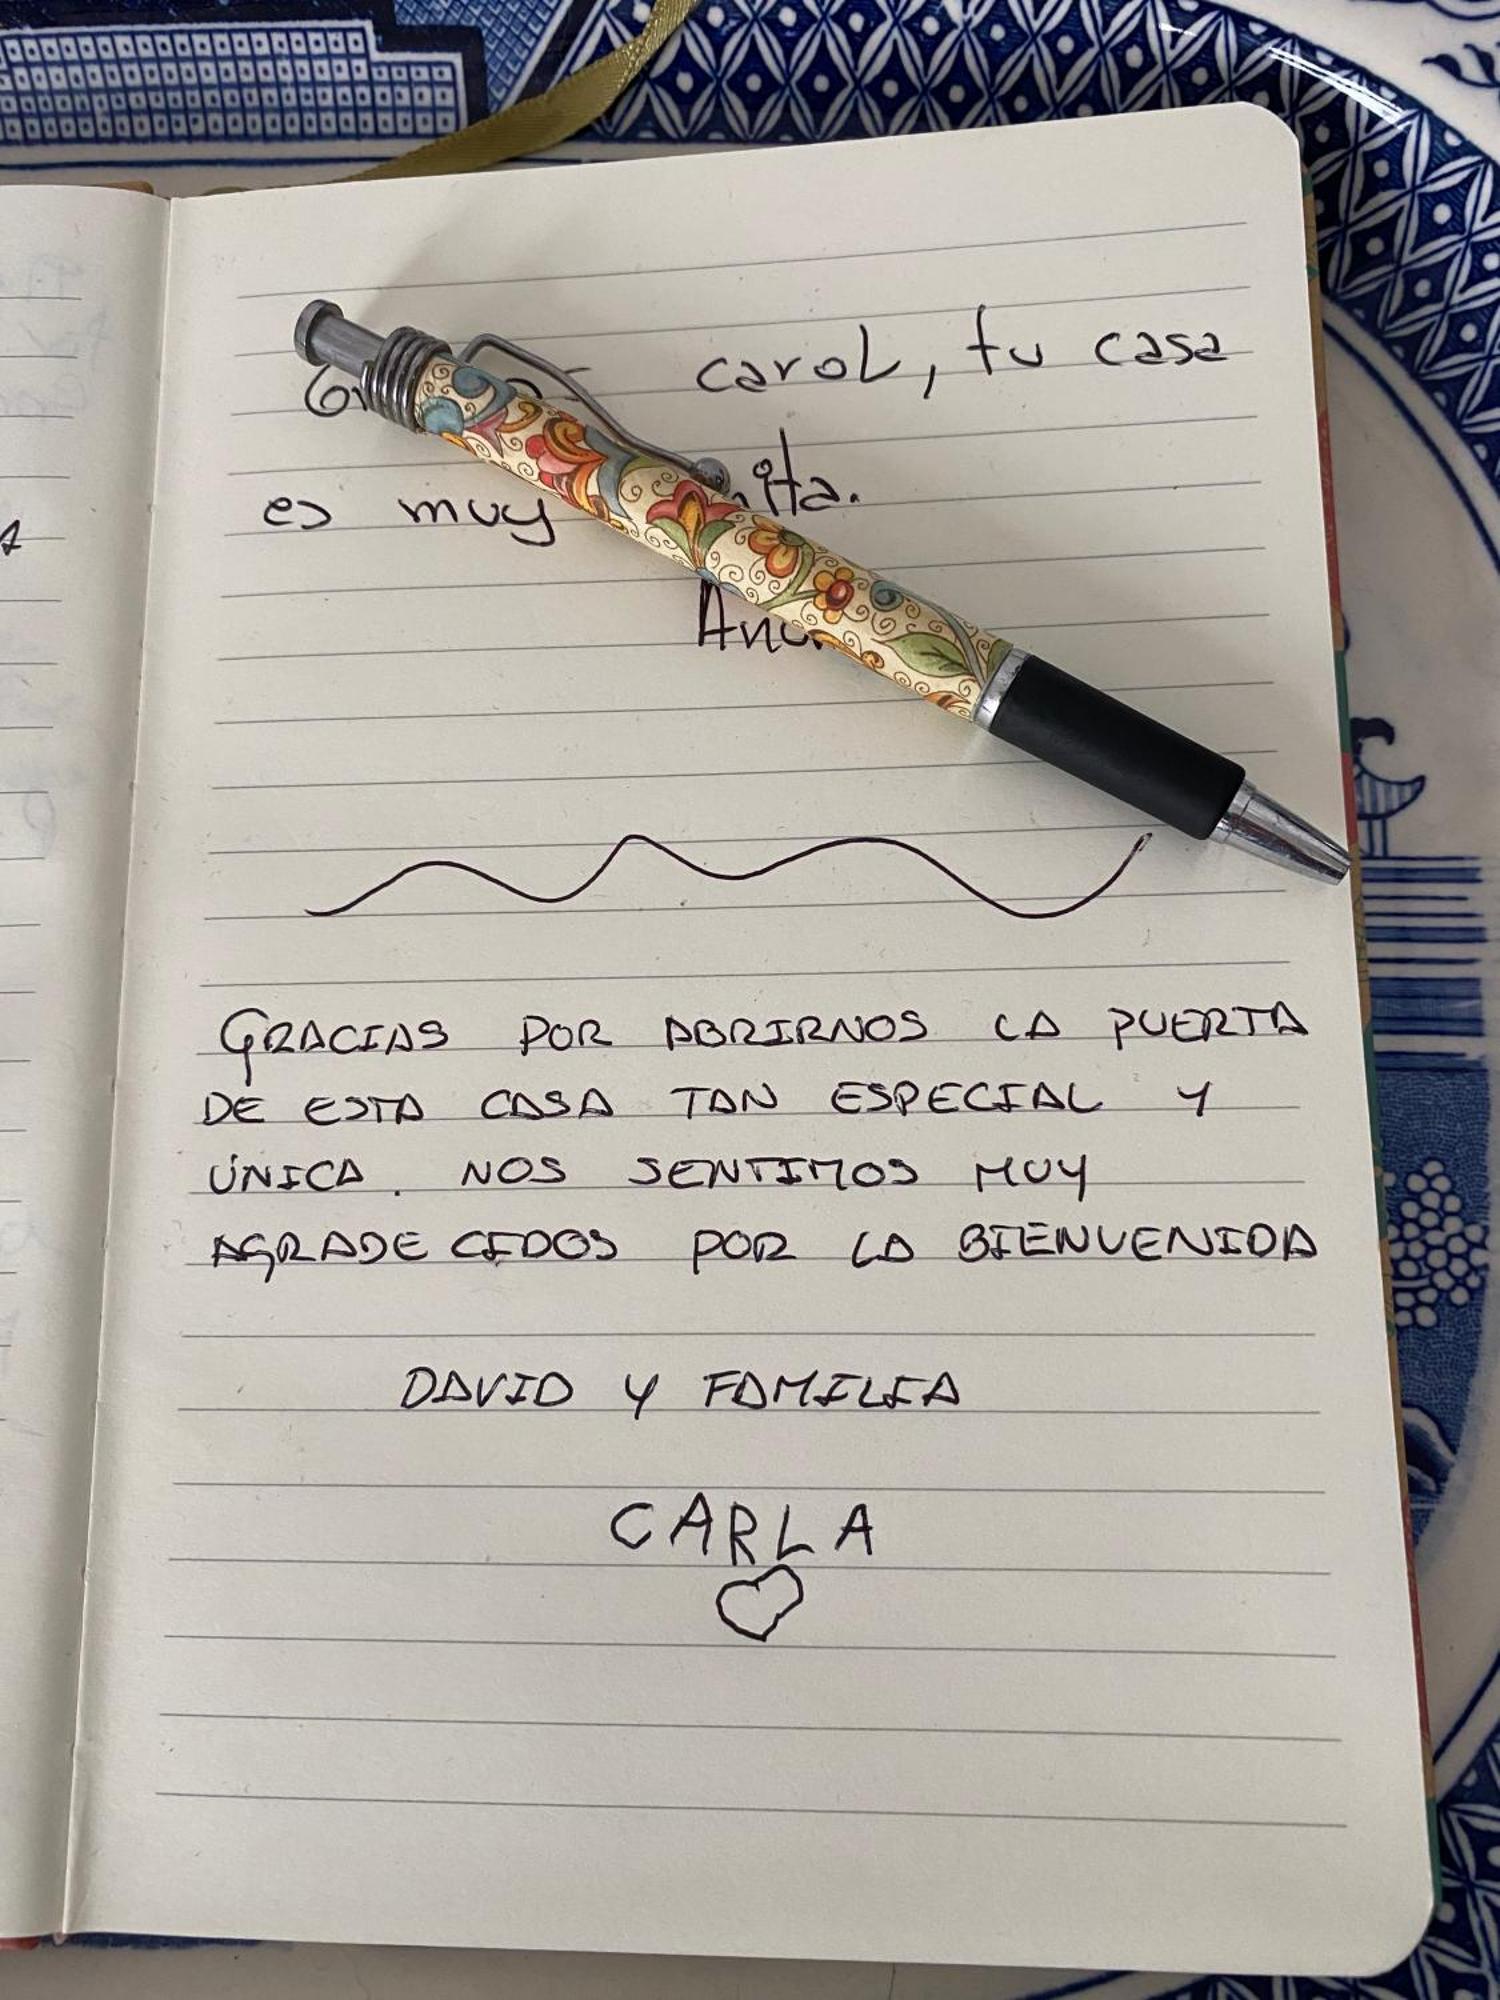 carol, tu casa
es muy
GRACIAS POR ABRIRNOS LA PUERTA
DE ESTA CASA TAN ESPECIAL Y
ÚNICA. NOS SENTIMOS MUY
AGRADECIDOS POR LA BIENVENIDA
DAVID Y FAMILIA
CARLA